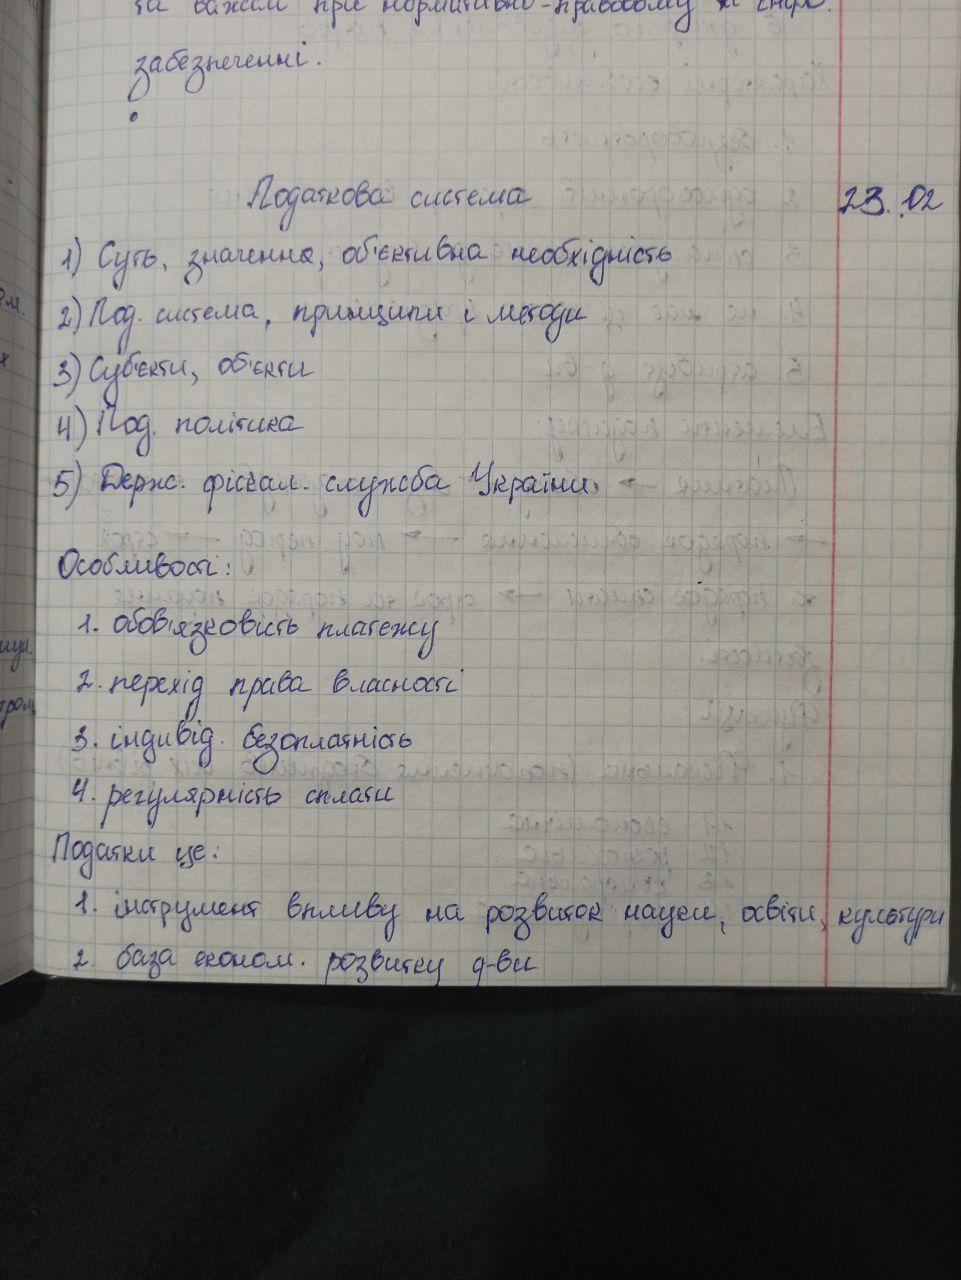 та важелі при нормативно-правовому та інфо.
забезпеченні.
Податкова система 23.02
1) Суть, значення, об'єктивна необхідність
2) Под. система, принципи і методи
3) Суб'єкти, об'єкти
4) Под. політика
5) Держ. фіскал. служба України
Особливості:
1. обов'язковість платежу
2. перехід права власності
3. індивід. безоплатність
4. регулярність сплати
Податки це:
1. інструмент впливу на розвиток науки, освіти, культури
2. база економ. розвитку д-ви